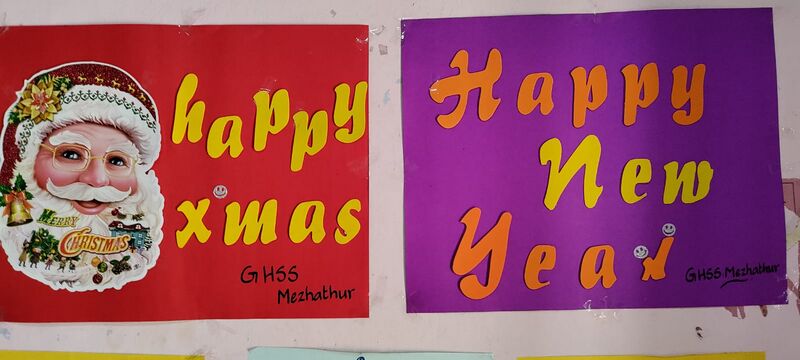 happy
xmas
MERRY
CHRISTMAS
GHSS
Mezhathur
Happy
New
Year
GHSS Mezhathur